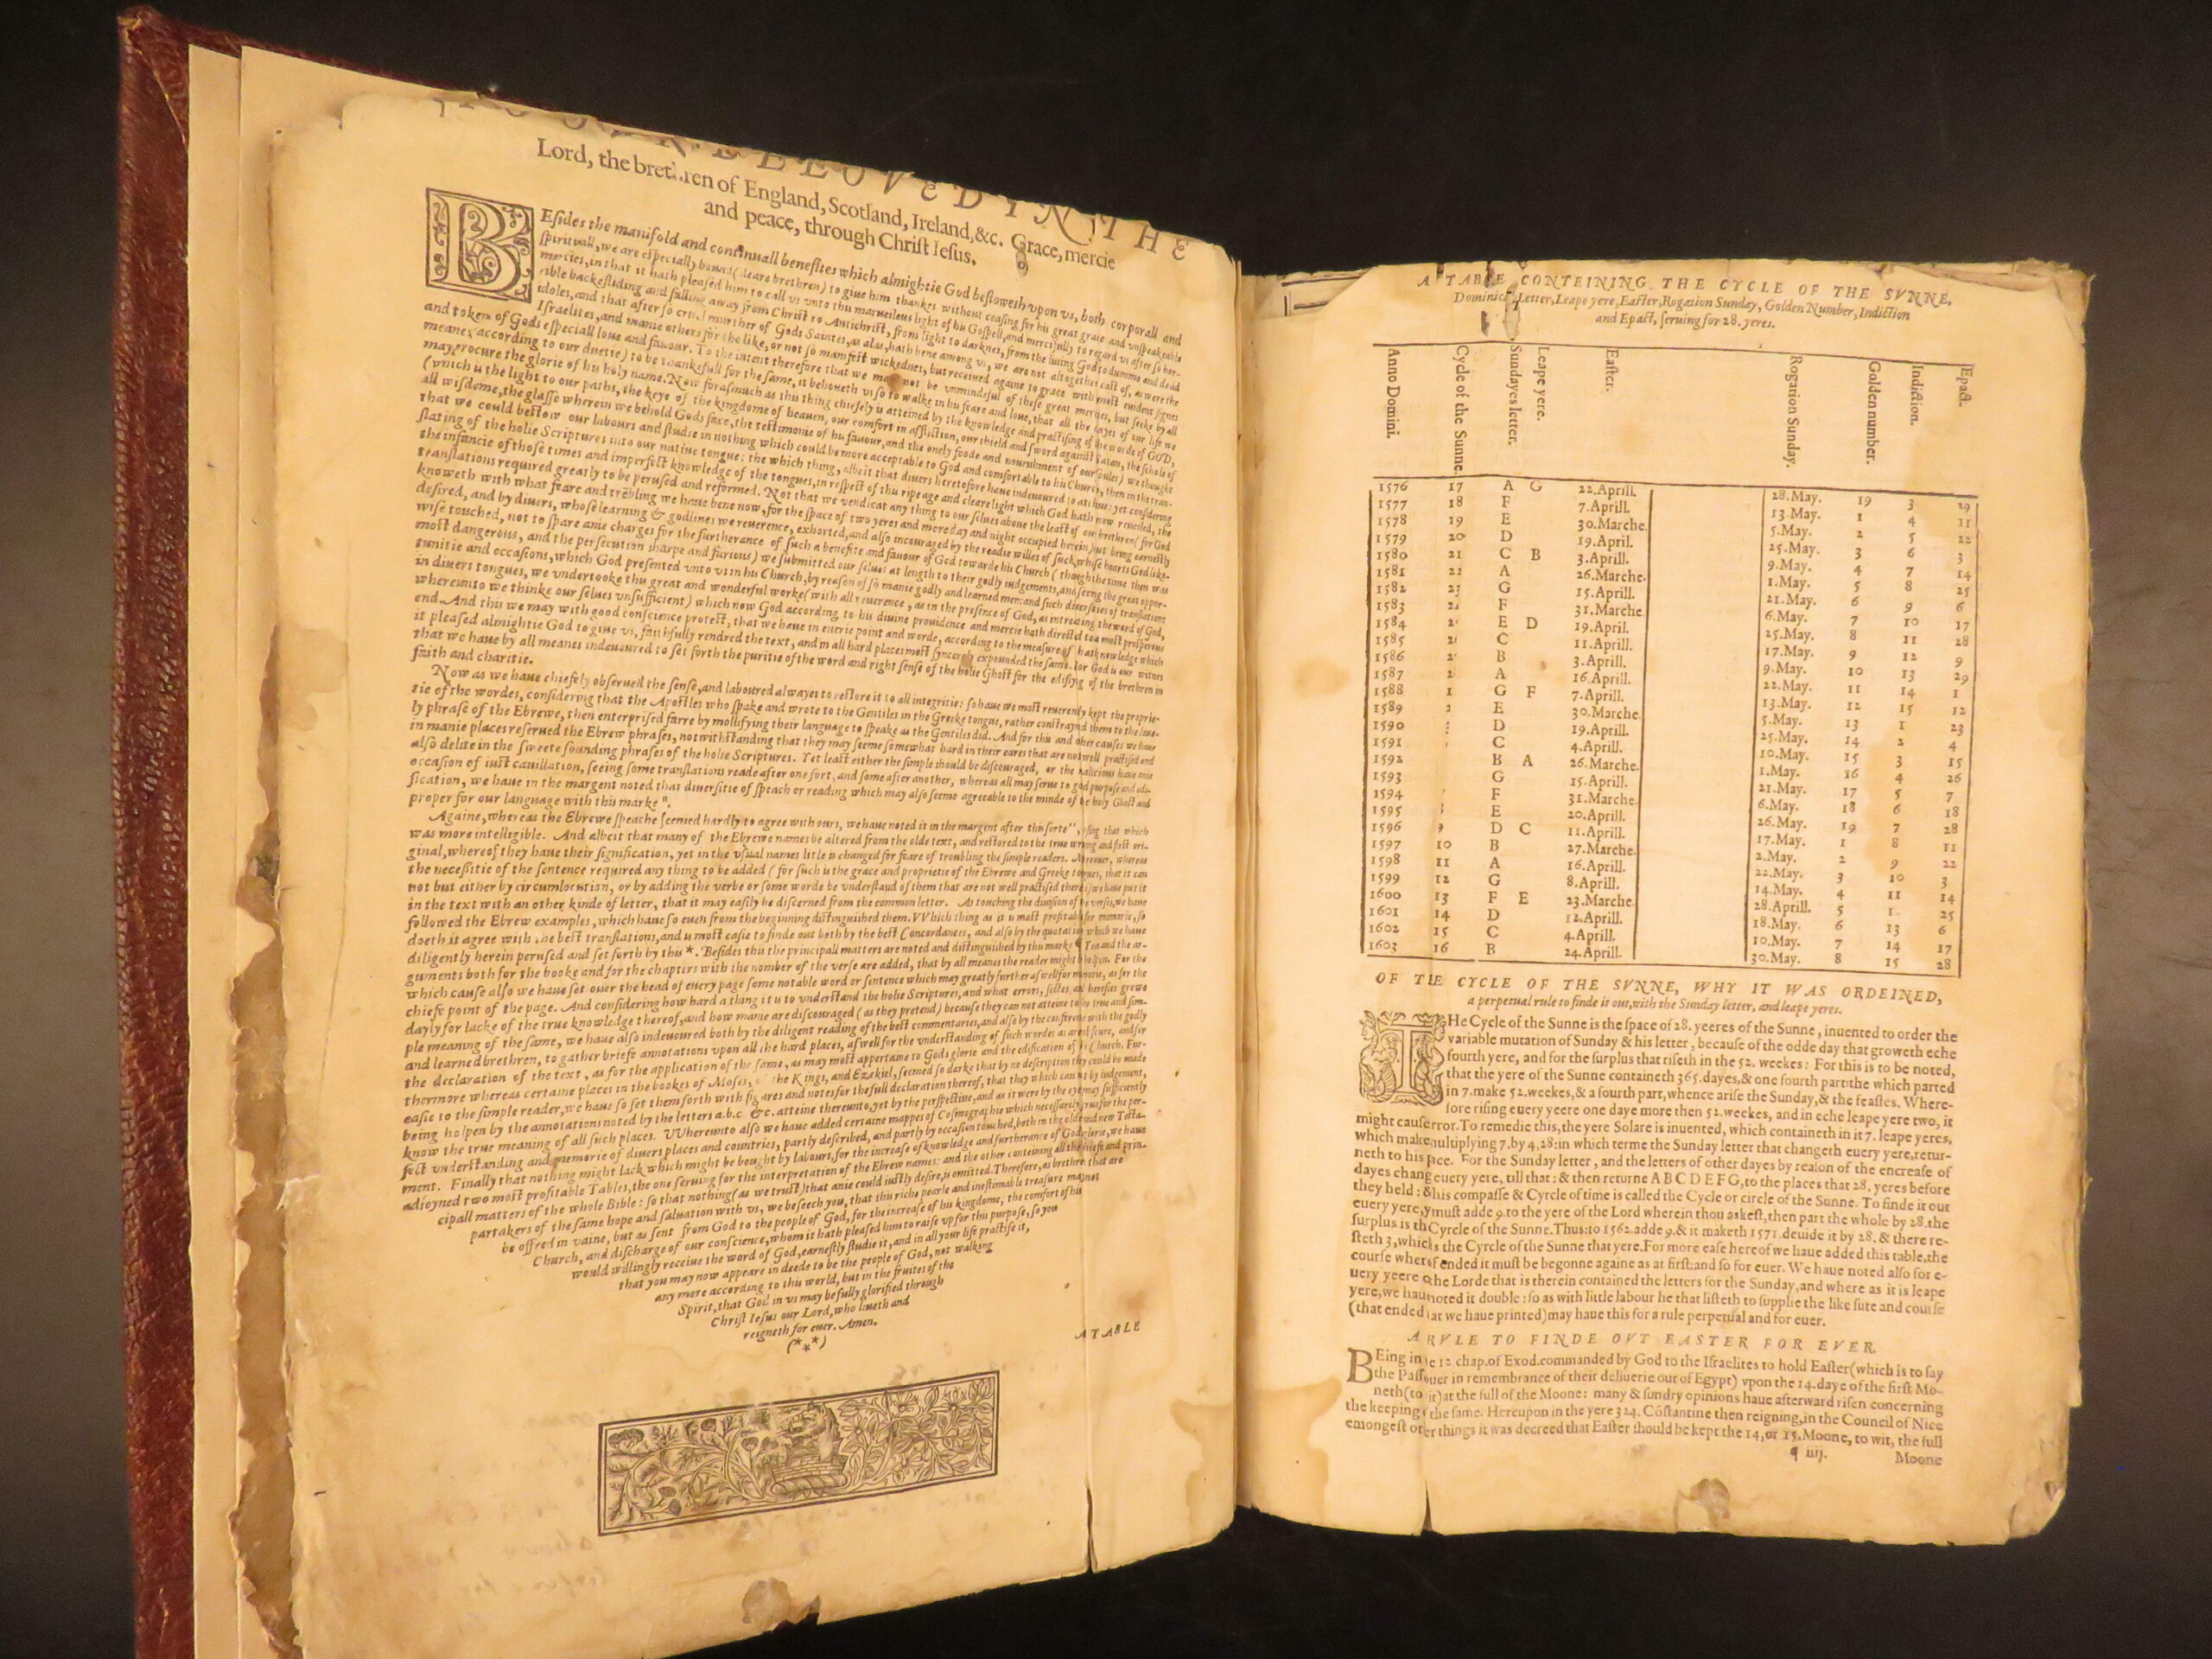 BELOVED IN THE
Lord, the brethren of England, Scotland, Ireland, &c. Grace, mercie
and peace, through Chriſt Ieſus.
BEſides the manifold and continuall benefites which almightie God beſtoweth vpon vs, both corporall and
ſpirituall, we are eſpecially bound (deare brethren) to giue him thankes without ceaſing for his great grace and vnſpeakeable
mercies, in that it hath pleaſed him to call vs vnto this marueilous light of his Goſpell, and mercifully to regard vs after ſo hor-
rible backeſliding and falling away from Chriſt to Antichriſt, from light to darknes, from the liuing God to dumme and dead
idoles, and that after ſo cruel murther of Gods Saintes, as alas, hath bene among vs, we are not altogether caſt of, as were the
Iſraelites, and manie others for the like, or not ſo manifeſt wickednes, but receiued againe to grace with moſt euident ſignes
and token of Gods eſpeciall loue and fauour. To the intent therefore that we may not be vnmindeful of theſe great mercies, but ſeeke by all
meanes (according to our duetie) to be thankefull for the ſame, it behoueth vs ſo to walke in his feare and loue, that all the dayes of our life we
may procure the glorie of his holy name. Now foraſmuch as this thing chiefely is atteined by the knowledge and practiſing of the worde of GOD,
(which is the light to our paths, the keye of the kingdome of heauen, our comfort in affliction, our ſhield and ſword againſt Satan, the ſchole of
all wiſdome, the glaſſe wherein we behold Gods face, the teſtimonie of his fauour, and the onely foode and nouriſhment of our ſoules) we thought
that we could beſtow our labours and ſtudie in nothing which could be more acceptable to God and comfortable to his Church, then in the tran-
ſlating of the holie Scriptures into our natiue tongue: the which thing, albeit that diuers heretofore haue indeuoured to atchiue: yet conſidering
the infancie of thoſe times and imperfect knowledge of the tongues, in reſpect of this ripe age and cleere light which God hath now reueiled, the
tranſlations required greatly to be peruſed and reformed. Not that we vendicat any thing to our ſelues aboue the leaſt of our brethren (for God
knoweth with what feare and trēbling we haue bene now, for the ſpace of two yeres and more day and night occupied herein) but being earneſtly
deſired, and by diuers, whoſe learning & godlines we reuerence, exhorted, and alſo incouraged by the readie willes of ſuch, whoſe hearts God like-
wiſe touched, not to ſpare anie charges for the furtherance of ſuch a benefite and fauour of God towarde his Church (though the time then was
moſt dangerous, and the perſecution ſharpe and furious) we ſubmitted our ſelues at length to their godly iudgements, and ſeeing the great oppor-
tunitie and occaſions, which God preſented vnto vs in his Church, by reaſon of ſo manie godly and learned men: and ſuch diuerſities of tranſlations
in diuers tongues, we vndertooke this great and wonderful worke (with all reuerence, as in the preſence of God, as intreating the word of God,
whereunto we thinke our ſelues vnſufficient) which now God according to his diuine prouidence and mercie hath directed to a moſt proſperous
end. And this we may with good conſcience proteſt, that we haue in euerie point and worde, according to the meaſure of that knowledge which
it pleaſed almightie God to giue vs, faithfully rendred the text, and in all hard places moſt ſyncerely expounded the ſame. For God is our witnes
that we haue by all meanes indeuoured to ſet forth the puritie of the word and right ſenſe of the holie Ghoſt for the edifying of the brethren in
faith and charitie.
Now as we haue chiefely obſerued the ſenſe, and laboured alwayes to reſtore it to all integritie: ſo haue we moſt reuerently kept the proprie-
tie of the wordes, conſidering that the Apoſtles who ſpake and wrote to the Gentiles in the Greeke tongue, rather conſtraynd them to the liue-
ly phraſe of the Ebrewe, then enterpriſed farre by mollifying their language to ſpeake as the Gentiles did. And for this and other cauſes we haue
in manie places reſerued the Ebrew phraſes, notwithſtanding that they may ſeeme ſomewhat hard in their eares that are not well practiſed and
alſo delite in the ſweete ſounding phraſes of the holie Scriptures. Yet leaſt either the ſimple ſhould be diſcouraged, or the malicious haue anie
occaſion of iuſt cauillation, ſeeing ſome tranſlations reade after one ſort, and ſome after another, whereas all may ſerue to good purpoſe and edi-
fication, we haue in the margent noted that diuerſitie of ſpeach or reading which may alſo ſeeme agreeable to the minde of the holy Ghoſt and
proper for our language with this marke ".
Againe, whereas the Ebrewe ſpeache ſeemed hardly to agree with ours, we haue noted it in the margent after this ſorte ", vſing that which
was more intelligible. And albeit that many of the Ebrewe names be altered from the olde text, and reſtored to the true writing and firſt ori-
ginal, whereof they haue their ſignification, yet in the vſual names litle is changed for feare of troubling the ſimple readers. Moreouer, whereas
the neceſſitie of the ſentence required any thing to be added (for ſuch is the grace and proprietie of the Ebrewe and Greeke tongues, that it can
not but either by circumlocution, or by adding the verbe or ſome worde be vnderſtand of them that are not well practiſed therein) we haue put it
in the text with an other kinde of letter, that it may eaſily be diſcerned from the common letter. As touching the diuiſion of the verſes, we haue
followed the Ebrew examples, which haue ſo euen from the beginning diſtinguiſhed them. VVhich thing as it is moſt profitable for memorie, ſo
doeth it agree with the beſt tranſlations, and is moſt eaſie to finde out both by the beſt Concordances, and alſo by the quotations which we haue
diligently herein peruſed and ſet forth by this *. Beſides this the principall matters are noted and diſtinguiſhed by this marke ¶ Yea and the ar-
guments both for the booke and for the chapters with the nomber of the verſe are added, that by all meanes the reader might be holpen. For the
which cauſe alſo we haue ſet ouer the head of euery page ſome notable word or ſentence which may greatly further aſwell for memorie, as for the
chiefe point of the page. And conſidering how hard a thing it is to vnderſtand the holie Scriptures, and what errors, ſectes, and hereſies growe
dayly for lacke of the true knowledge thereof, and how manie are diſcouraged (as they pretend) becauſe they can not atteine to the true and ſim-
ple meaning of the ſame, we haue alſo indeuoured both by the diligent reading of the beſt commentaries, and alſo by the conference with the godly
and learned brethren, to gather briefe annotations vpon all the hard places, aſwell for the vnderſtanding of ſuch wordes as are obſcure, and for
the declaration of the text, as for the application of the ſame, as may moſt apperteine to Gods glorie and the edification of his Church. Fur-
thermore whereas certaine places in the bookes of Moſes, of the Kings, and Ezekiel, ſeemed ſo darke that by no deſcription they could be made
eaſie to the ſimple reader, we haue ſo ſet them forth with figures and notes for the full declaration thereof, that they which can not by iudgement,
being holpen by the annotations noted by the letters a.b.c. &c. atteine thereunto, yet by the perſpectiue, and as it were by the eye may ſufficiently
know the true meaning of all ſuch places. VVhereunto alſo we haue added certaine mappes of Coſmographie which neceſſarily ſerue for the per-
fect vnderſtanding and memorie of diuers places and countries, partly deſcribed, and partly by occaſion touched, both in the olde and new Teſta-
ment. Finally that nothing might lack which might be bought by labours, for the increaſe of knowledge and furtherance of Gods glorie, we haue
adioyned two moſt profitable Tables, the one ſeruing for the interpretation of the Ebrew names: and the other conteining all the chiefe and prin-
cipall matters of the whole Bible: ſo that nothing (as we truſt) that anie could iuſtly deſire, is omitted. Therefore, as brethren that are
partakers of the ſame hope and ſaluation with vs, we beſeech you, that this riche pearle and ineſtimable treaſure may not
be offred in vaine, but as ſent from God to the people of God, for the increaſe of his kingdome, the comfort of his
Church, and diſcharge of our conſcience, whom it hath pleaſed him to raiſe vp for this purpoſe, ſo you
would willingly receiue the word of God, earneſtly ſtudie it, and in all your life practiſe it,
that you may now appeare in deede to be the people of God, not walking
any more according to this world, but in the fruites of the
Spirit, that God in vs may be fully glorified through
Chriſt Ieſus our Lord, who liueth and
reigneth for euer. Amen.
(***)
A TABLE
A TABLE CONTEINING THE CYCLE OF THE SVNNE,
Dominical Letter, Leape yere, Eaſter, Rogation Sunday, Golden Number, Indiction
and Epact, ſeruing for 28. yeres.
Anno Domini. Cycle of the Sunne. Sundayes letter. Leape yere. Eaſter. Rogation Sunday. Golden number. Indiction. Epact.
1576 17 A G 22.Aprill. 28.May. 19 3 29
1577 18 F 7.Aprill. 13.May. 1 4 11
1578 19 E 30.Marche. 5.May. 2 5 22
1579 20 D 19.April. 25.May. 3 6 3
1580 21 C B 3.Aprill. 9.May. 4 7 14
1581 22 A 26.Marche. 1.May. 5 8 25
1582 23 G 15.Aprill. 21.May. 6 9 6
1583 F 31.Marche. 6.May. 7 10 17
1584 E D 19.April. 25.May. 8 11 28
1585 C 11.Aprill. 17.May. 9 12 9
1586 B 3.Aprill. 9.May. 10 13 29
1587 A 16.Aprill. 22.May. 11 14 1
1588 1 G F 7.Aprill. 13.May. 12 15 12
1589 2 E 30.Marche. 5.May. 13 1 23
1590 D 19.Aprill. 25.May. 14 2 4
1591 C 4.Aprill. 10.May. 15 3 15
1592 B A 26.Marche. 1.May. 16 4 26
1593 G 15.Aprill. 21.May. 17 5 7
1594 F 31.Marche. 6.May. 18 6 18
1595 E 20.Aprill. 26.May. 19 7 28
1596 9 D C 11.Aprill. 17.May. 1 8 11
1597 10 B 27.Marche. 2.May. 2 9 22
1598 11 A 16.Aprill. 22.May. 3 10 3
1599 12 G 8.Aprill. 14.May. 4 11 14
1600 13 F E 23.Marche. 28.Aprill. 5 1 25
1601 14 D 12.Aprill. 18.May. 6 13 6
1602 15 C 4.Aprill. 10.May. 7 14 17
1603 16 B 24.Aprill. 30.May. 8 15 28
OF THE CYCLE OF THE SVNNE, WHY IT WAS ORDEINED,
a perpetual rule to finde it out, with the Sunday letter, and leape yeres.
THe Cycle of the Sunne is the ſpace of 28. yeeres of the Sunne, inuented to order the
variable mutation of Sunday & his letter, becauſe of the odde day that groweth eche
fourth yere, and for the ſurplus that riſeth in the 52. weekes: For this is to be noted,
that the yere of the Sunne containeth 365. dayes, & one fourth part: the which parted
in 7. make 52. weekes, & a fourth part, whence ariſe the Sunday, & the feaſtes. Where-
fore riſing euery yeere one daye more then 52. weekes, and in eche leape yere two, it
might cauſe error. To remedie this, the yere Solare is inuented, which containeth in it 7. leape yeres,
which make multiplying 7. by 4, 28: in which terme the Sunday letter that changeth euery yere, retur-
neth to his place. For the Sunday letter, and the letters of other dayes by reaſon of the encreaſe of
dayes change euery yere, till that: & then returne A B C D E F G, to the places that 28. yeres before
they held: & this compaſſe & Cyrcle of time is called the Cycle or circle of the Sunne. To finde it out
euery yere, y muſt adde 9. to the yere of the Lord wherein thou askeſt, then part the whole by 28. the
ſurplus is the Cyrcle of the Sunne. Thus: to 1562. adde 9. & it maketh 1571. deuide it by 28. & there re-
ſteth 3, which is the Cyrcle of the Sunne that yere. For more eaſe hereof we haue added this table, the
courſe whereof ended it muſt be begonne againe as at firſt: and ſo for euer. We haue noted alſo for e-
uery yeere of the Lorde that is therein contained the letters for the Sunday, and where as it is leape
yere, we haue noted it double: ſo as with little labour he that liſteth to ſupplie the like ſute and courſe
(that ended that we haue printed) may haue this for a rule perpetual and for euer.
A RVLE TO FINDE OVT EASTER FOR EVER.
BEing in the 12 chap. of Exod. commanded by God to the Iſraelites to hold Eaſter (which is to ſay
the Paſſouer in remembrance of their deliuerie out of Egypt) vpon the 14. daye of the firſt Mo-
neth (to wit) at the full of the Moone: many & ſundry opinions haue afterward riſen concerning
the keeping of the ſame. Hereupon in the yere 324. Cōſtantine then reigning, in the Council of Nice
emongeſt other things it was decreed that Eaſter ſhould be kept the 14, or 15. Moone, to wit, the full
¶ iiij. Moone